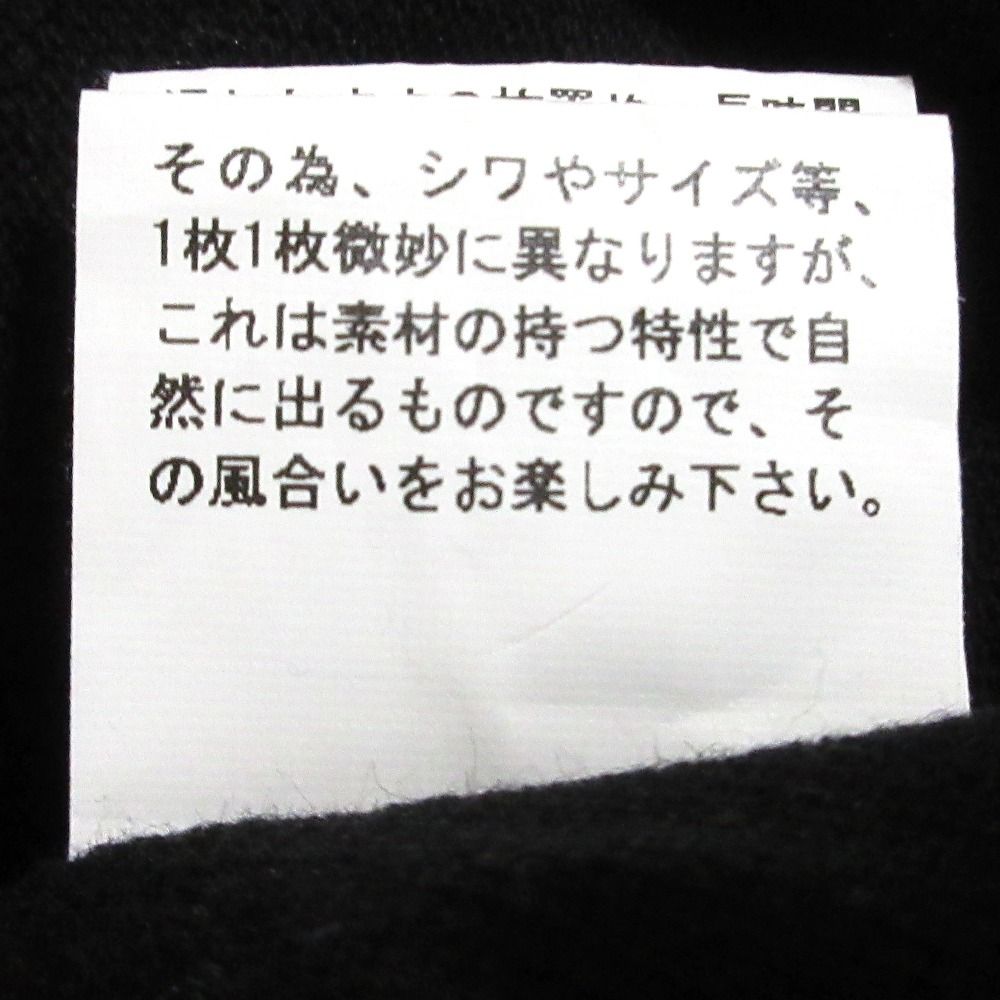 その為、シワやサイズ等、
1枚1枚微妙に異なりますが、
これは素材の持つ特性で自
然に出るものですので、そ
の風合いをお楽しみ下さい。